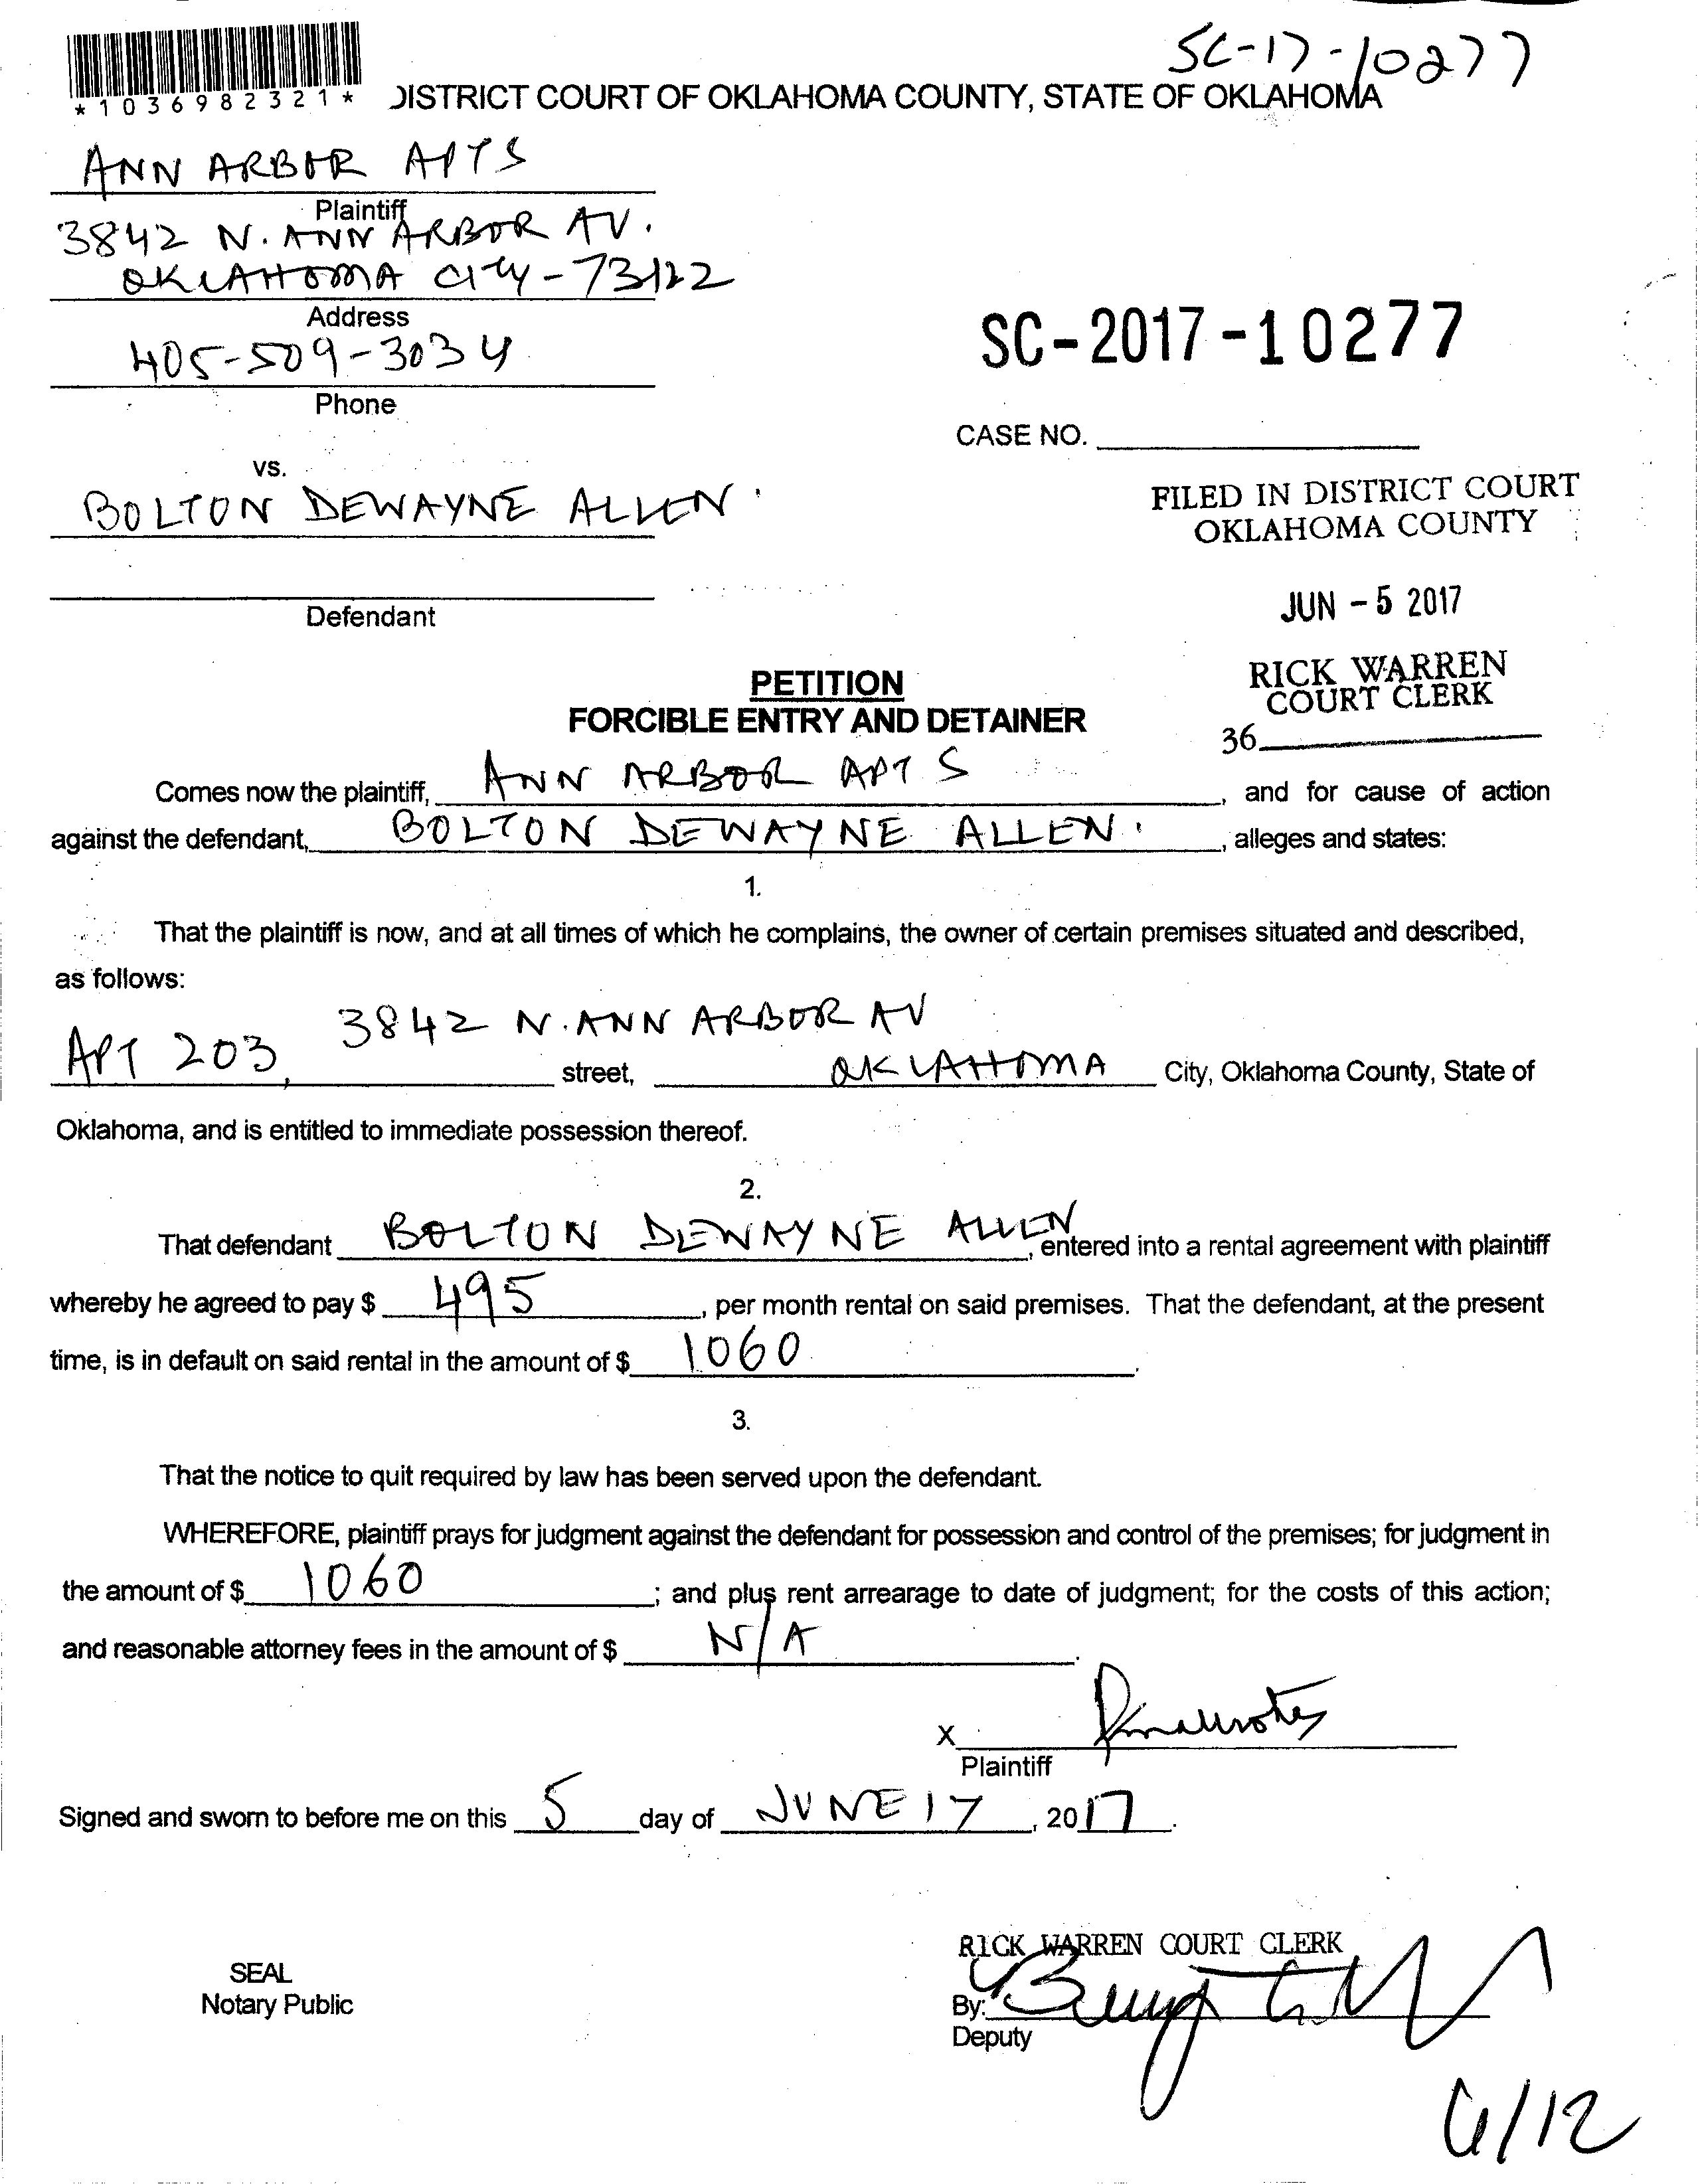 SC-17-10277
*1036982321*
DISTRICT COURT OF OKLAHOMA COUNTY, STATE OF OKLAHOMA
ANN ARBOR APTS
Plaintiff
3842 N. ANN ARBOR AV.
OKLAHOMA CITY - 73122
Address
405-509-3034
Phone
SC-2017-10277
CASE NO.
vs.
BOLTON DEWAYNE ALLEN.
Defendant
FILED IN DISTRICT COURT
OKLAHOMA COUNTY
JUN - 5 2017
RICK WARREN
COURT CLERK
36
PETITION
FORCIBLE ENTRY AND DETAINER
Comes now the plaintiff, ANN ARBOR APTS, and for cause of action
against the defendant, BOLTON DEWAYNE ALLEN., alleges and states:
1.
That the plaintiff is now, and at all times of which he complains, the owner of certain premises situated and described,
as follows:
APT 203, 3842 N. ANN ARBOR AV street, OKLAHOMA City, Oklahoma County, State of
Oklahoma, and is entitled to immediate possession thereof.
2.
That defendant BOLTON DEWAYNE ALLEN, entered into a rental agreement with plaintiff
whereby he agreed to pay $ 495, per month rental on said premises. That the defendant, at the present
time, is in default on said rental in the amount of $ 1060.
3.
That the notice to quit required by law has been served upon the defendant.
WHEREFORE, plaintiff prays for judgment against the defendant for possession and control of the premises; for judgment in
the amount of $ 1060; and plus rent arrearage to date of judgment; for the costs of this action;
and reasonable attorney fees in the amount of $ N/A.
X
Plaintiff
Signed and sworn to before me on this 5 day of JUNE 17, 2017.
RICK WARREN COURT CLERK
SEAL
Notary Public
By:
Deputy
6/12